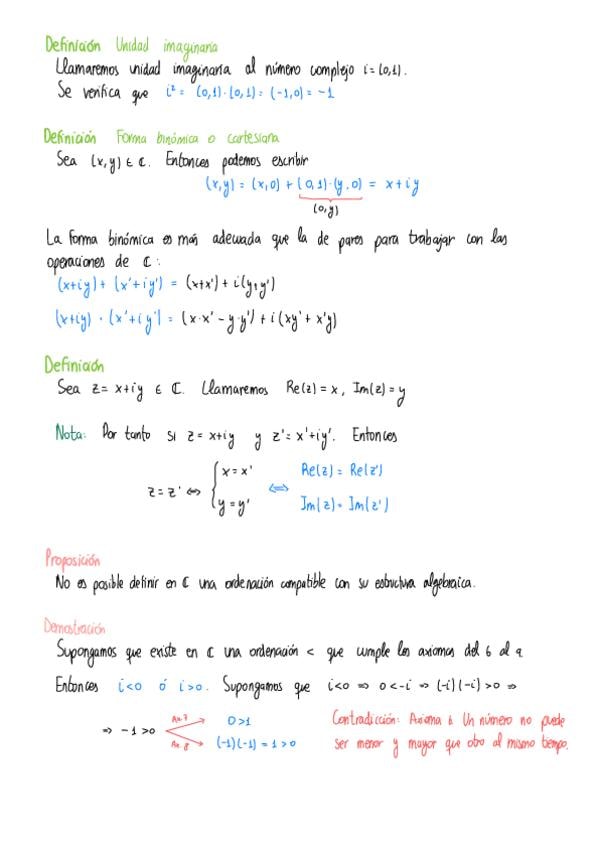 Definición Unidad imaginaria
Llamaremos unidad imaginaria al número complejo i = (0,1).
Se verifica que i² = (0,1)·(0,1) = (-1,0) = -1
Definición Forma binómica o cartesiana
Sea (x,y) ∈ ℂ. Entonces podemos escribir
(x,y) = (x,0) + (0,1)·(y,0) = x+iy
(0,y)
La forma binómica es más adecuada que la de pares para trabajar con las
operaciones de ℂ:
(x+iy) + (x'+iy') = (x+x') + i(y+y')
(x+iy) · (x'+iy') = (x·x' - y·y') + i(xy' + x'y)
Definición
Sea z = x+iy ∈ ℂ. Llamaremos Re(z) = x, Im(z) = y
Nota: Por tanto si z = x+iy y z' = x'+iy'. Entonces
z = z' ⇔ { x = x' ⇔ Re(z) = Re(z')
y = y' Im(z) = Im(z')
Proposición
No es posible definir en ℂ una ordenación compatible con su estructura algebraica.
Demostración
Supongamos que existe en ℂ una ordenación < que cumple los axiomas del 6 al 9.
Entonces i<0 ó i>0. Supongamos que i<0 ⇒ 0<-i ⇒ (-i)(-i) > 0 ⇒
⇒ -1 > 0 Ax 7 0 > 1 Contradicción: Axioma 6 Un número no puede
Ax 8 (-1)(-1) = 1 > 0 ser menor y mayor que otro al mismo tiempo.